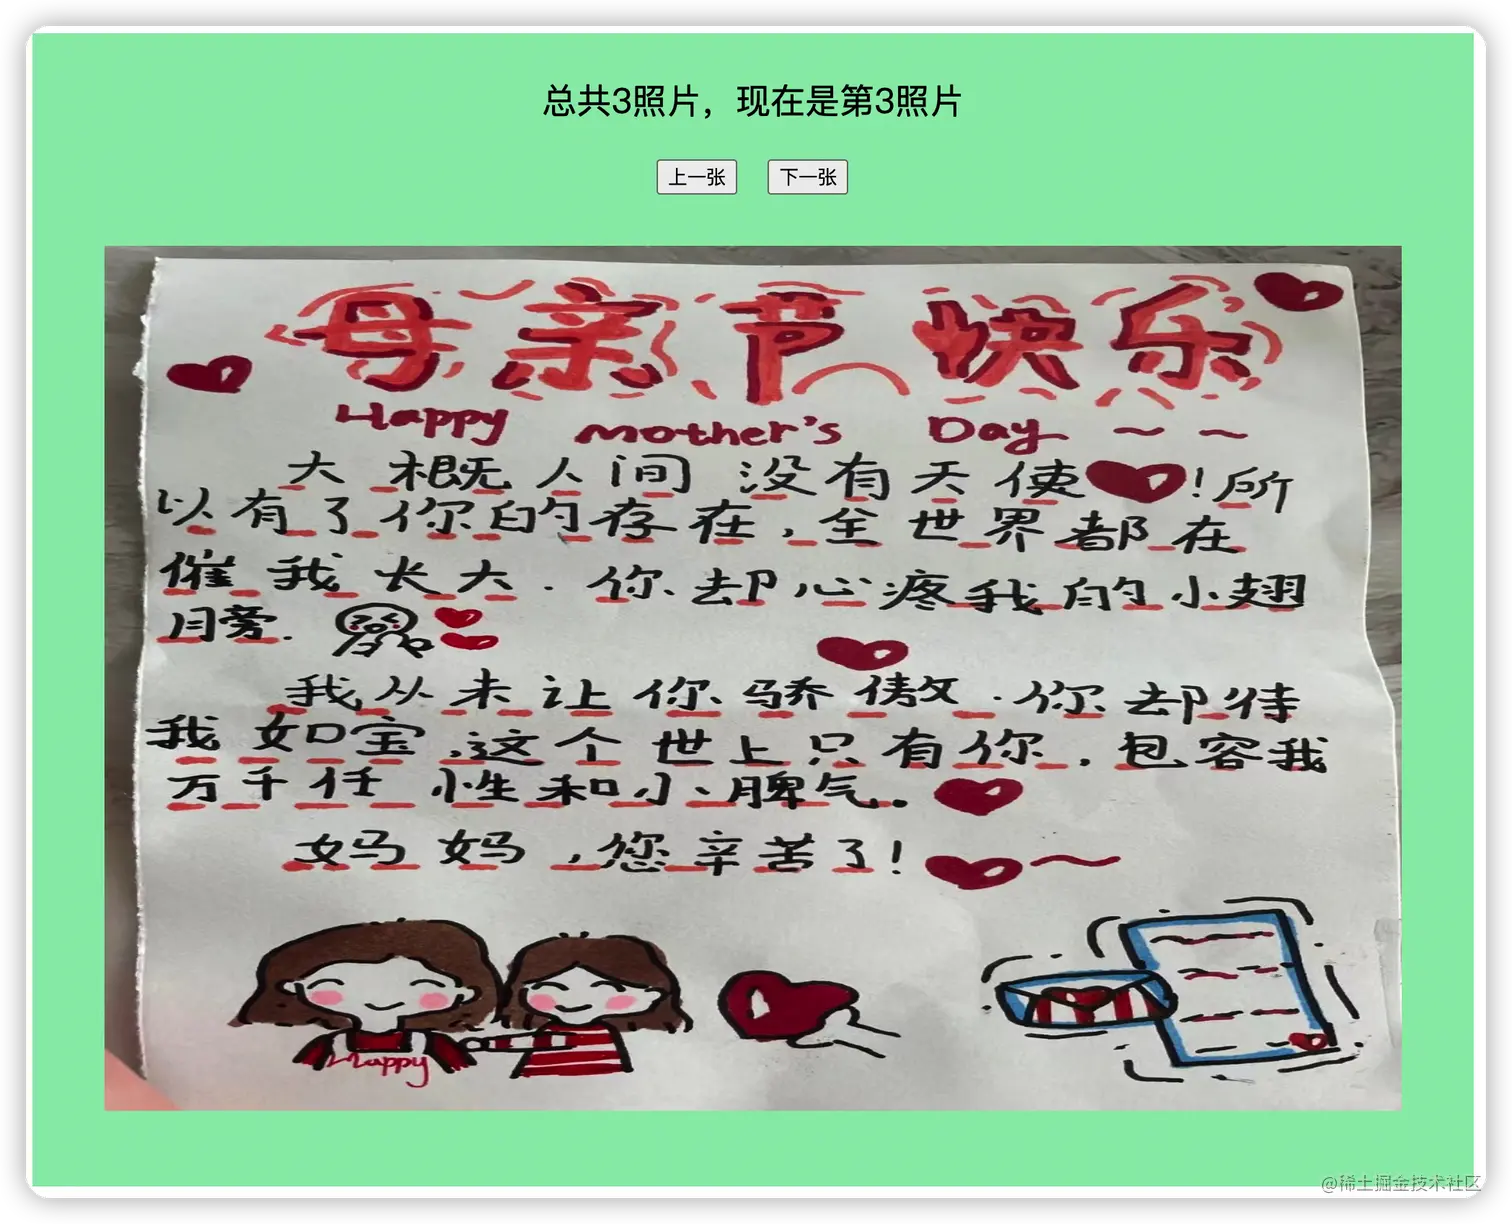 总共3照片，现在是第3照片
上一张 下一张
母亲节快乐
Happy mother's Day ~ ~
大概人间没有天使！所
以有了你的存在，全世界都在
催我长大．你却心疼我的小翅
膀．
我从未让你骄傲．你却待
我如宝，这个世上只有你，包容我
万千任性和小脾气。
妈妈，您辛苦了！~
Happy
@稀土掘金技术社区